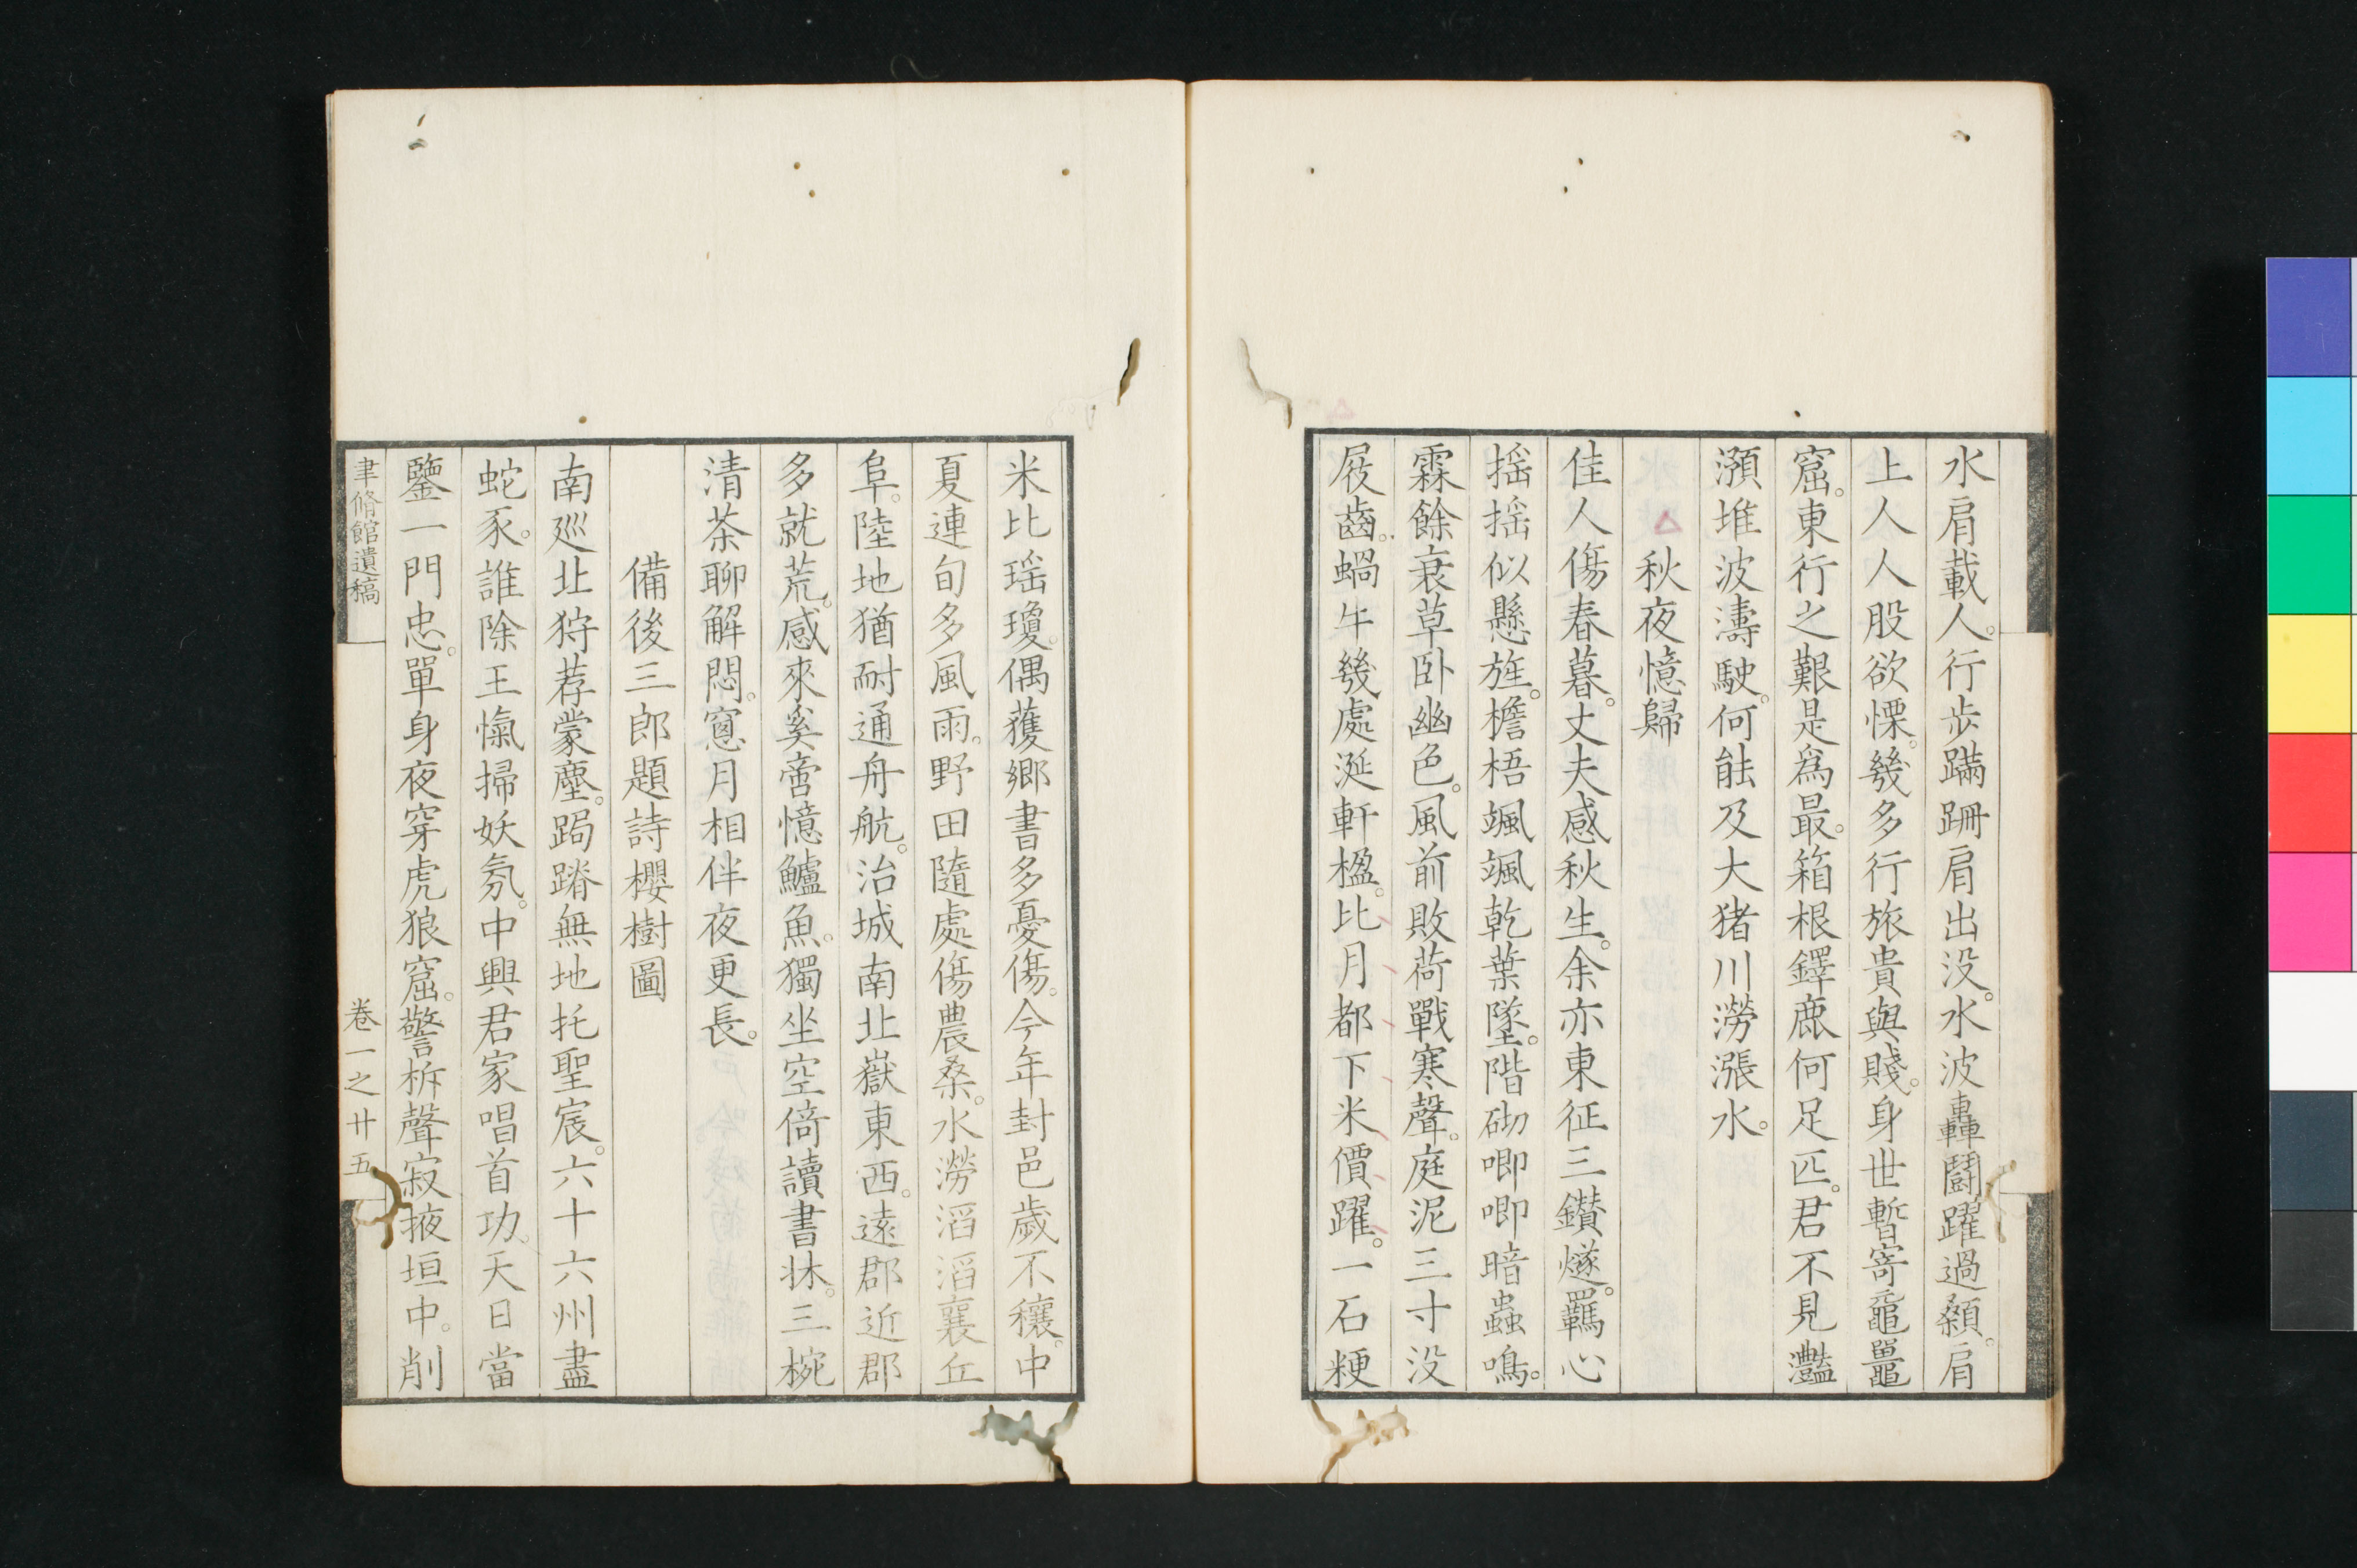 水肩載人。行步蹣跚肩出没。水波轟鬪躍過顙。肩
上人人股欲慄。幾多行旅貴與賤。身世暫寄黿鼉
窟。東行之艱是爲最。箱根鐸鹿何足匹。君不見灩
澦堆波濤駛。何能及大猪川澇漲水。
秋夜憶歸
佳人傷春暮。丈夫感秋生。余亦東征三鑚燧。羈心
揺揺似懸旌。檐梧颯颯乾葉墜。階砌唧唧暗蟲鳴。
霖餘衰草卧幽色。風前敗荷戰寒聲。庭泥三寸没
屐齒。蝸牛幾處涎軒楹。比月都下米價躍。一石粳
米比瑶瓊。偶獲鄉書多憂傷。今年封邑歲不穰。中
夏連旬多風雨。野田隨處傷農桑。水澇滔滔襄丘
阜。陸地猶耐通舟航。治城南北嶽東西。遠郡近郡
多就荒。感來奚啻憶鱸魚。獨坐空倚讀書牀。三椀
清茶聊解悶。窻月相伴夜更長。
備後三郎題詩櫻樹圖
南巡北狩荐蒙塵。跼蹐無地托聖宸。六十六州盡
蛇豕。誰除王愾掃妖氛。中興君家唱首功。天日當
鑒一門忠。單身夜穿虎狼窟。警柝聲寂掖垣中。削
聿脩館遺稿
卷一之廿五